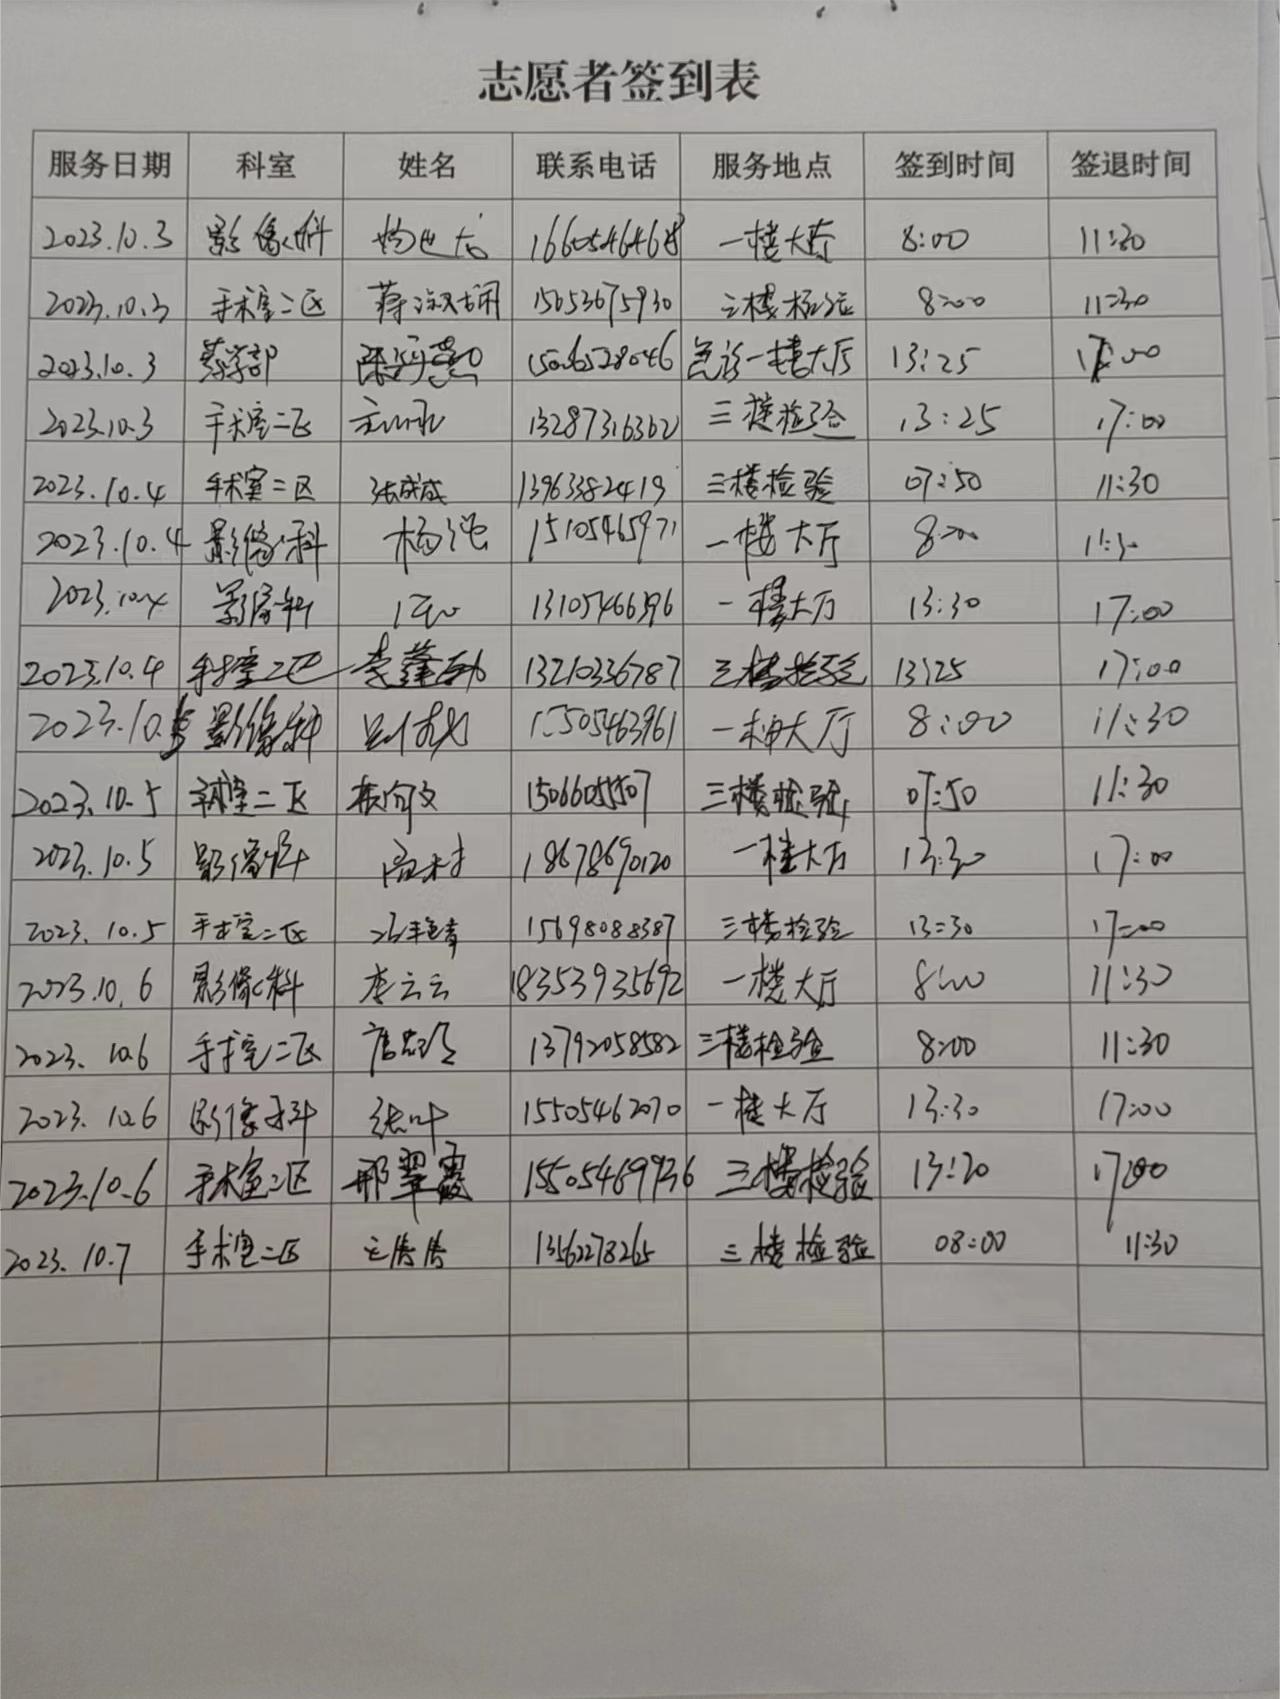 志愿者签到表
服务日期 科室 姓名 联系电话 服务地点 签到时间 签退时间
2023.10.3 影像科 一楼大厅 8:00 11:30
2023.10.3 手术室二区 15653675930 三楼检验 8:00 11:30
2023.10.3 药学部 急诊一楼大厅 13:25 17:00
2023.10.3 手术室二区 13287316362 三楼检验 13:25 17:00
2023.10.4 手术室二区 张成成 13963382419 三楼检验 07:50 11:30
2023.10.4 影像科 杨强 15105465971 一楼大厅 8:00 11:30
2023.10.4 影像科 13105466396 一楼大厅 13:30 17:00
2023.10.4 手术室二区 13210336787 三楼检验 13:25 17:00
2023.10.5 影像科 15505463961 一楼大厅 8:00 11:30
2023.10.5 手术室二区 三楼检验 07:50 11:30
2023.10.5 影像科 18678690120 一楼大厅 13:30 17:00
2023.10.5 手术室二区 15698088387 三楼检验 13:30 17:00
2023.10.6 影像科 李云云 18353935692 一楼大厅 8:00 11:30
2023.10.6 手术室二区 13792058582 三楼检验 8:00 11:30
2023.10.6 影像科 张叶 15505462070 一楼大厅 13:30 17:00
2023.10.6 手术室二区 邢翠霞 15505469936 三楼检验 13:20 17:00
2023.10.7 手术室二区 13562278265 三楼检验 08:00 11:30